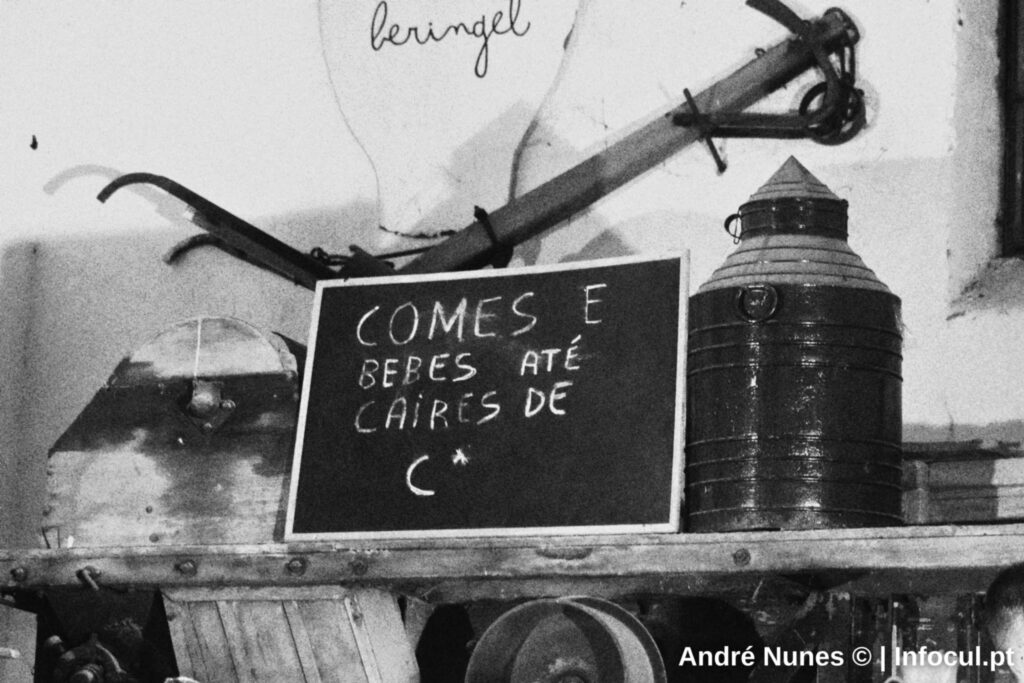 beringel
COMES E
BEBES ATÉ
CAIRES DE
C*
André Nunes © | Infocul.pt